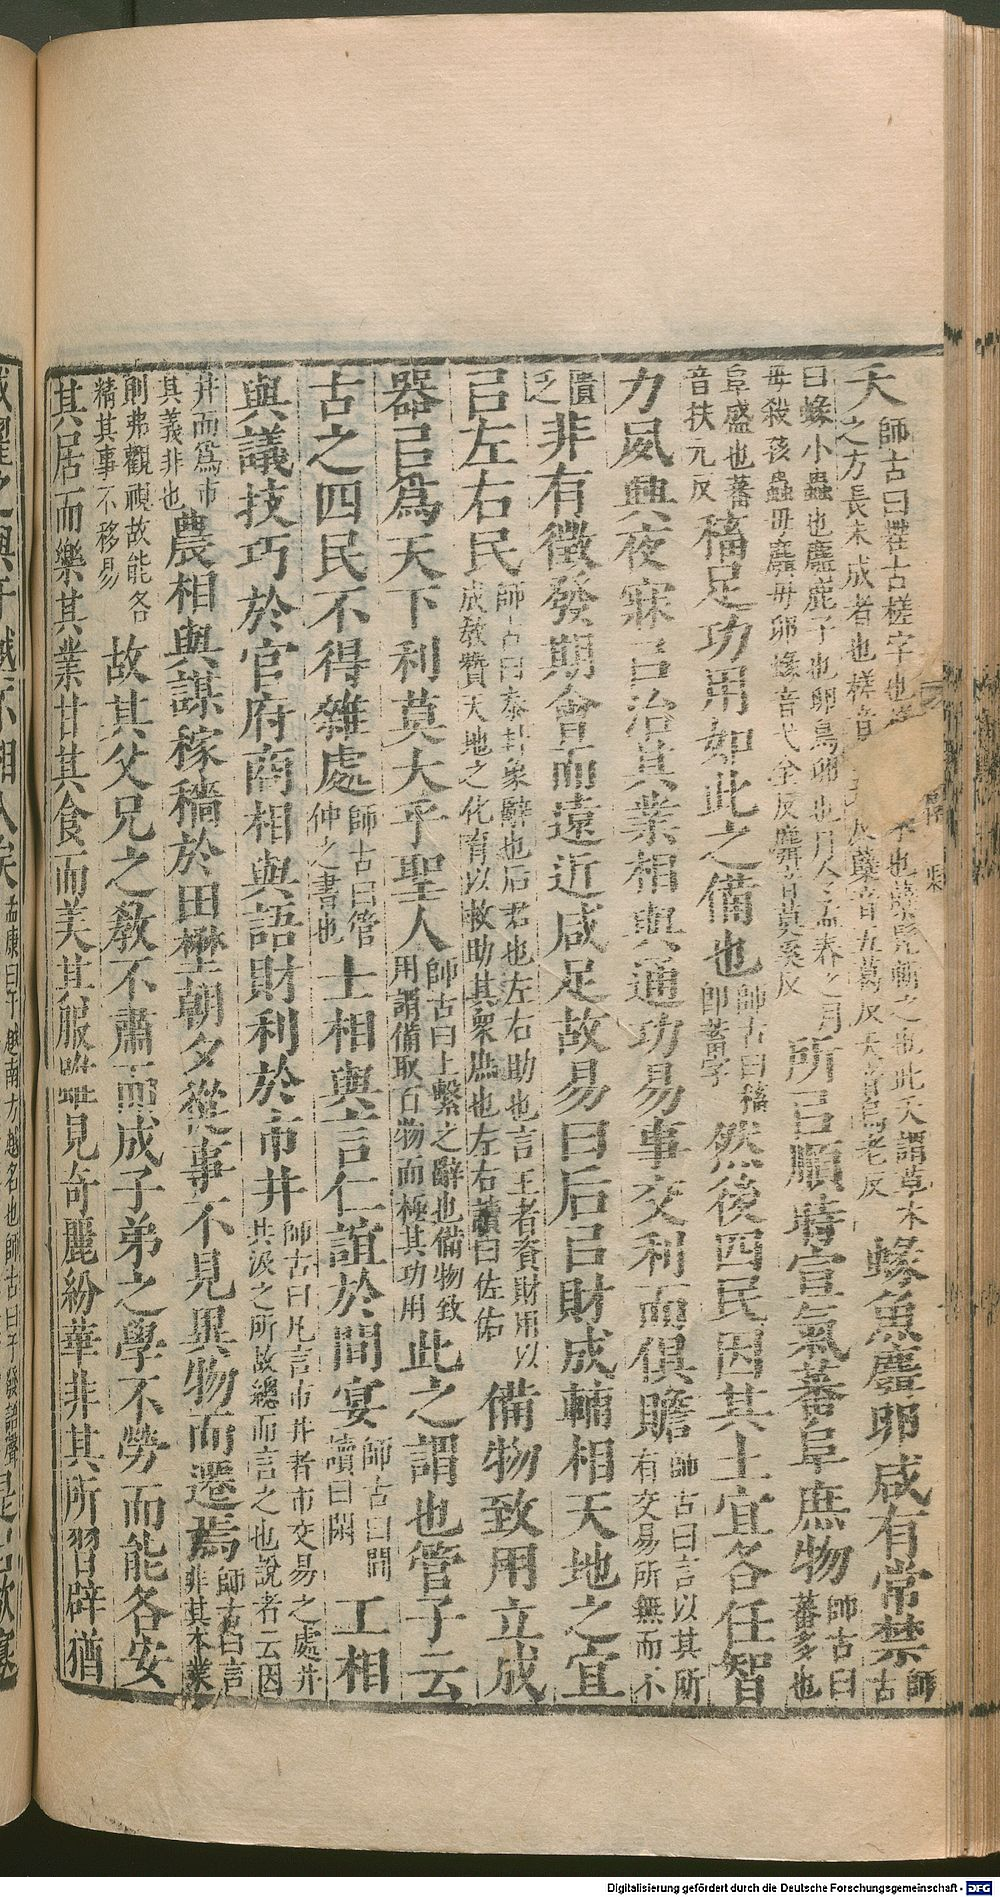 夭師古曰茬古槎字也
之方長未成者也槎音
也此夭謂草木
五葛反夭音烏老反
蝝魚麛卵咸有常禁師古
曰蝝小蟲也麛鹿子也卵鳥卵也月令孟春之月
毋殺孩蟲毋麛毋卵蝝音弋全反麛音莫奚反
所㠯順時宣氣蕃阜庶物師古曰蕃多也
阜盛也蕃音扶元反
稸足功用如此之備也師古曰稸即蓄字
然後四民因其土宜各任智
力夙興夜寐㠯治其業相與通功易事交利而俱贍師古曰言以其所有交易所無而不
匱乏
非有徵發期會而遠近咸足故易曰后㠯財成輔相天地之宜
㠯左右民師古曰泰卦象辭也后君也左右助也言王者資財用以成敎贊天地之化育以救助其衆庶也左右讀曰佐佑
備物致用立成
器㠯爲天下利莫大乎聖人師古曰上繫之辭也備物致用謂備取百物而極其功用
此之謂也管子云
古之四民不得雜處師古曰管仲之書也
士相與言仁誼於閒宴師古曰閒讀曰閑
工相
與議技巧於官府商相與語財利於市井師古曰凡言市井者市交易之處井共汲之所故總而言之也說者云因
井而爲市其義非也
農相與謀稼穡於田壄朝夕從事不見異物而遷焉師古曰言非其本業
則弗觀視故能各精其事不移易
故其父兄之敎不肅而成子弟之學不勞而能各安
其居而樂其業甘其食而美其服雖見奇麗紛華非其所習辟猶